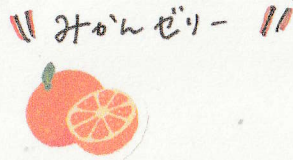 みかんゼリー